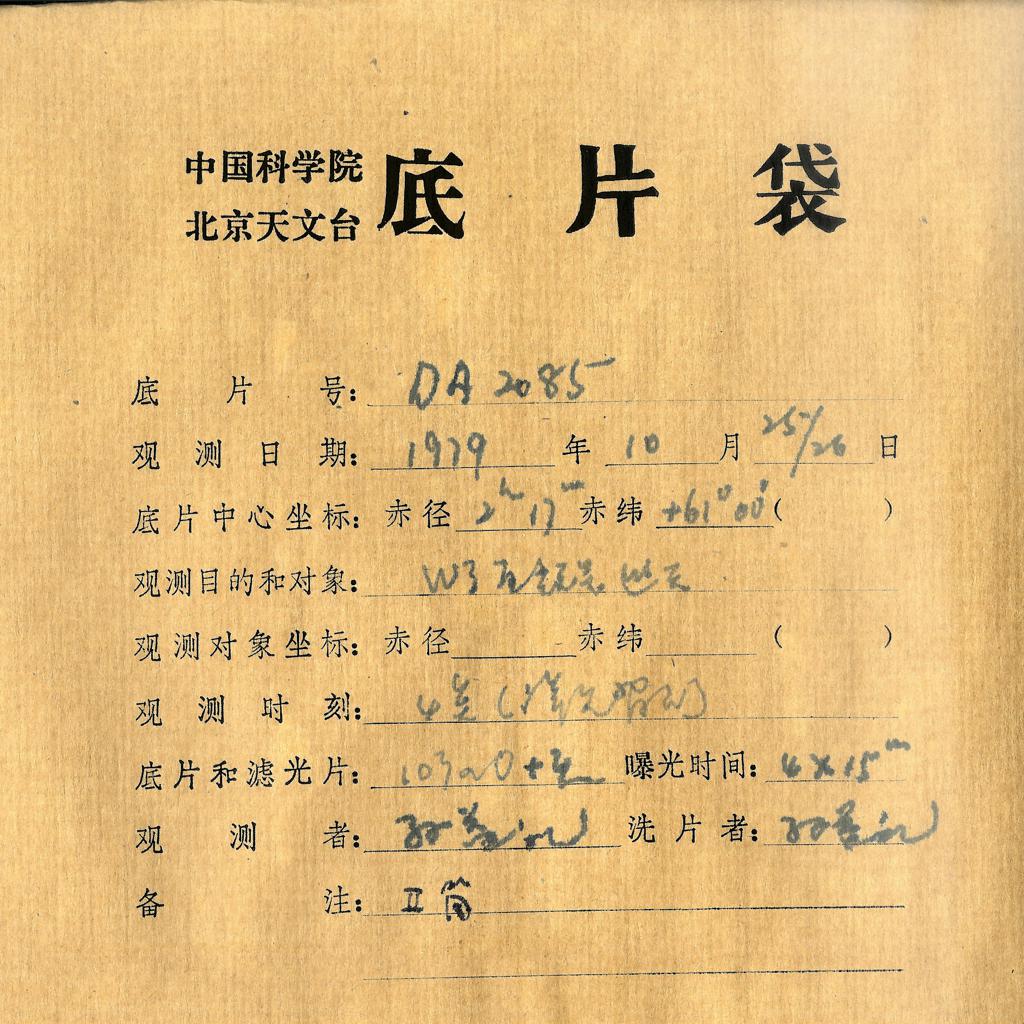 中国科学院
北京天文台
底片袋
底片号: DA 2085
观测日期: 1979 年 10 月 25/26 日
底片中心坐标: 赤径 2h 17m 赤纬 +61°00' ( )
观测目的和对象: W3
观测对象坐标: 赤径 赤纬 ( )
观测时刻: 4
底片和滤光片: 103aO+ 曝光时间: 4×15m
观测者: 洗片者:
备注: II 筒